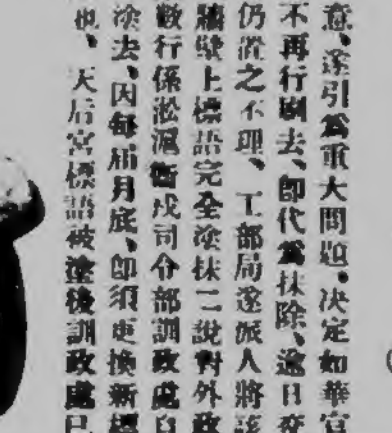 意、遂引爲重大問題。决定如華官
不再行刷去、卽代爲抹除、逾日交
仍置之不理、工部局遂派人將該
牆壁上標語完全塗抹二說對外政
數行係淞滬衞戍司令部訓政處自
塗去、因每屆月底、卽須更換新標
也、天后宮標語被塗後訓政處已